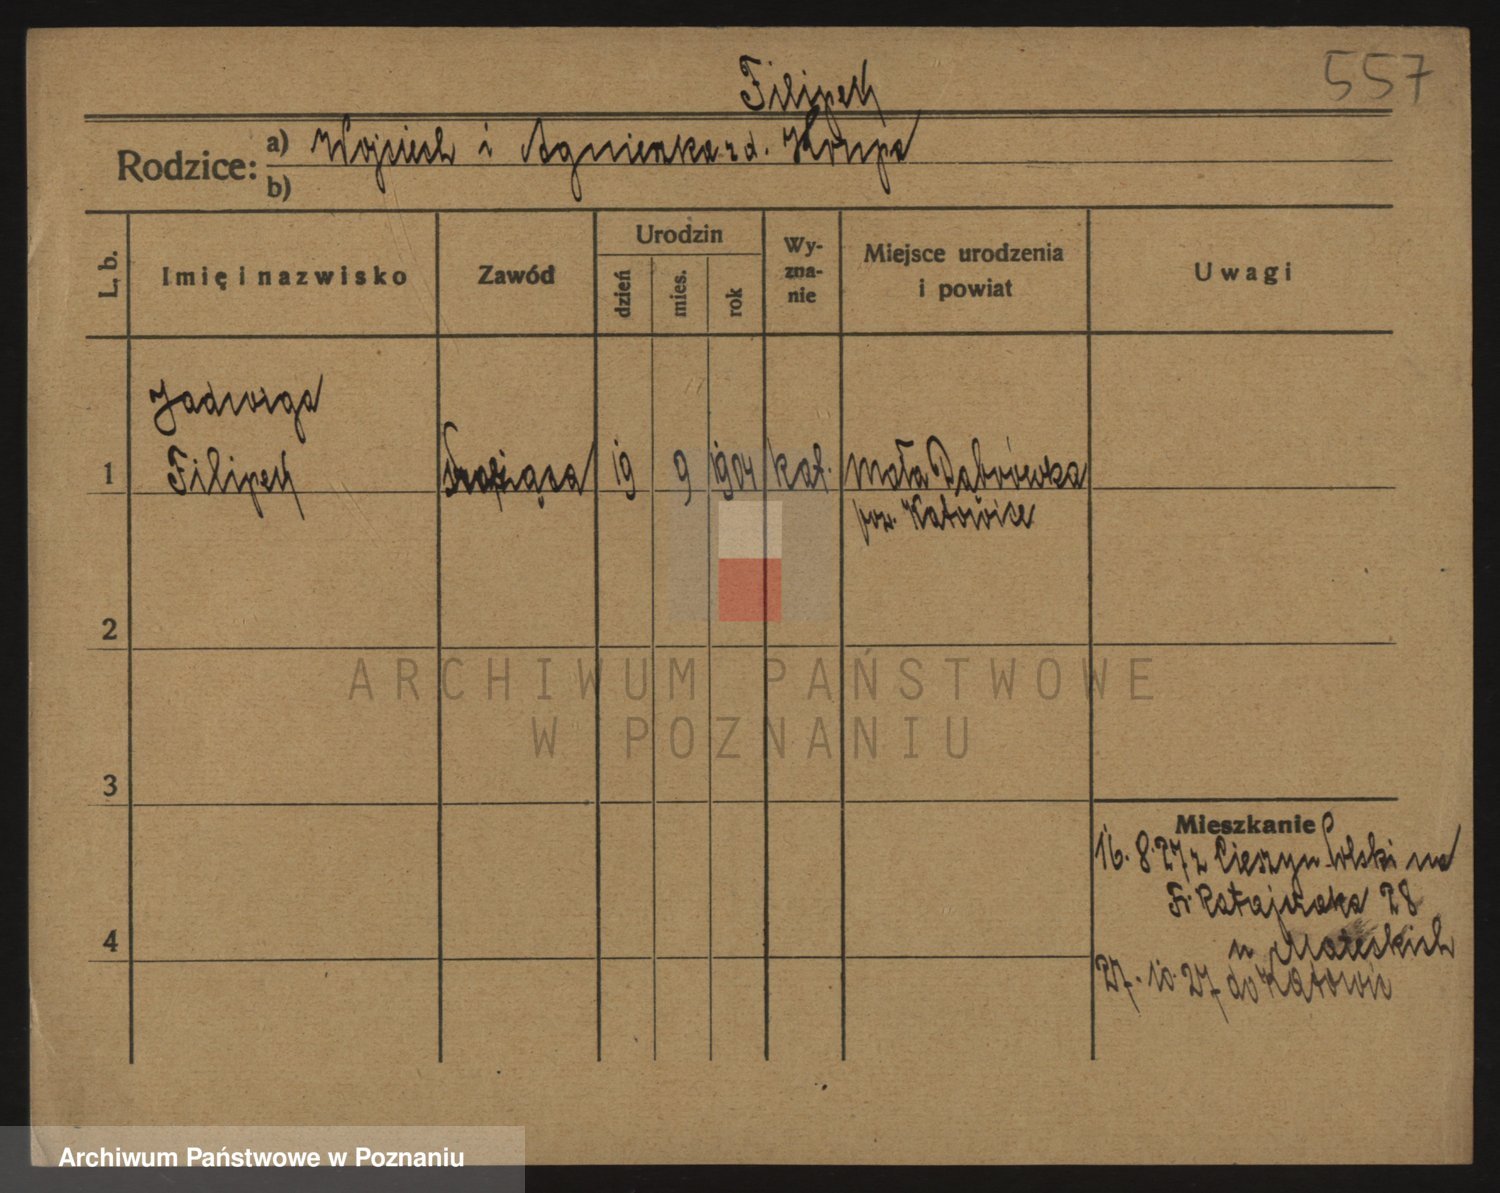 557
Filipek
Rodzice: a) Wojciech i Agnieszka z d. Krupa
b)
L. b.
Imię i nazwisko
Zawód
Urodzin
dzień
mies.
rok
Wy-
zna-
nie
Miejsce urodzenia
i powiat
Uwagi
Jadwiga
1 Filipek 19 9 1904 kat. Mała Dąbrówka
pow. Katowice
2
ARCHIWUM PAŃSTWOWE
W POZNANIU
3
Mieszkanie
16. 8. 27 z Cieszyn Polski na
Fr. Ratajczaka 28
4
u
27. 10. 27 do Katowic
Archiwum Państwowe w Poznaniu